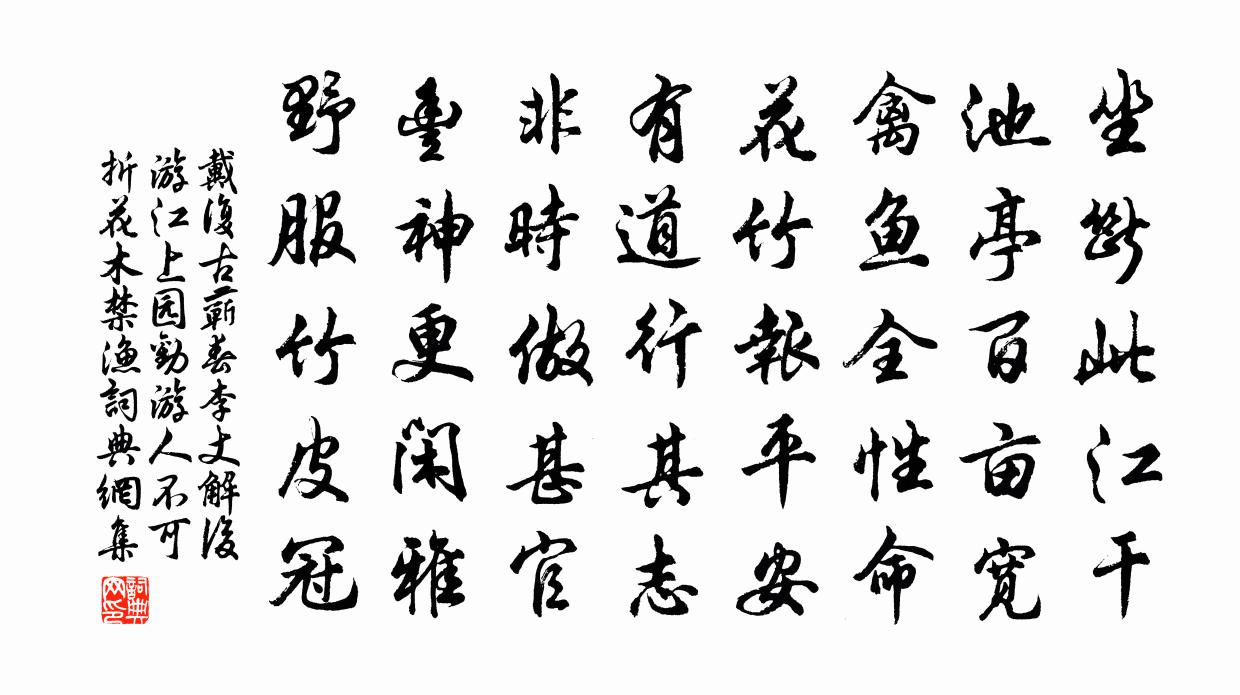 坐断此江干
池亭百亩宽
禽鱼全性命
花竹報平安
有道行其志
非時做甚官
豊神更闲雅
野服竹皮冠
戴復古蕲春李丈解后
游江上园劝游人不可
折花木禁渔詞典網集
詞典網印